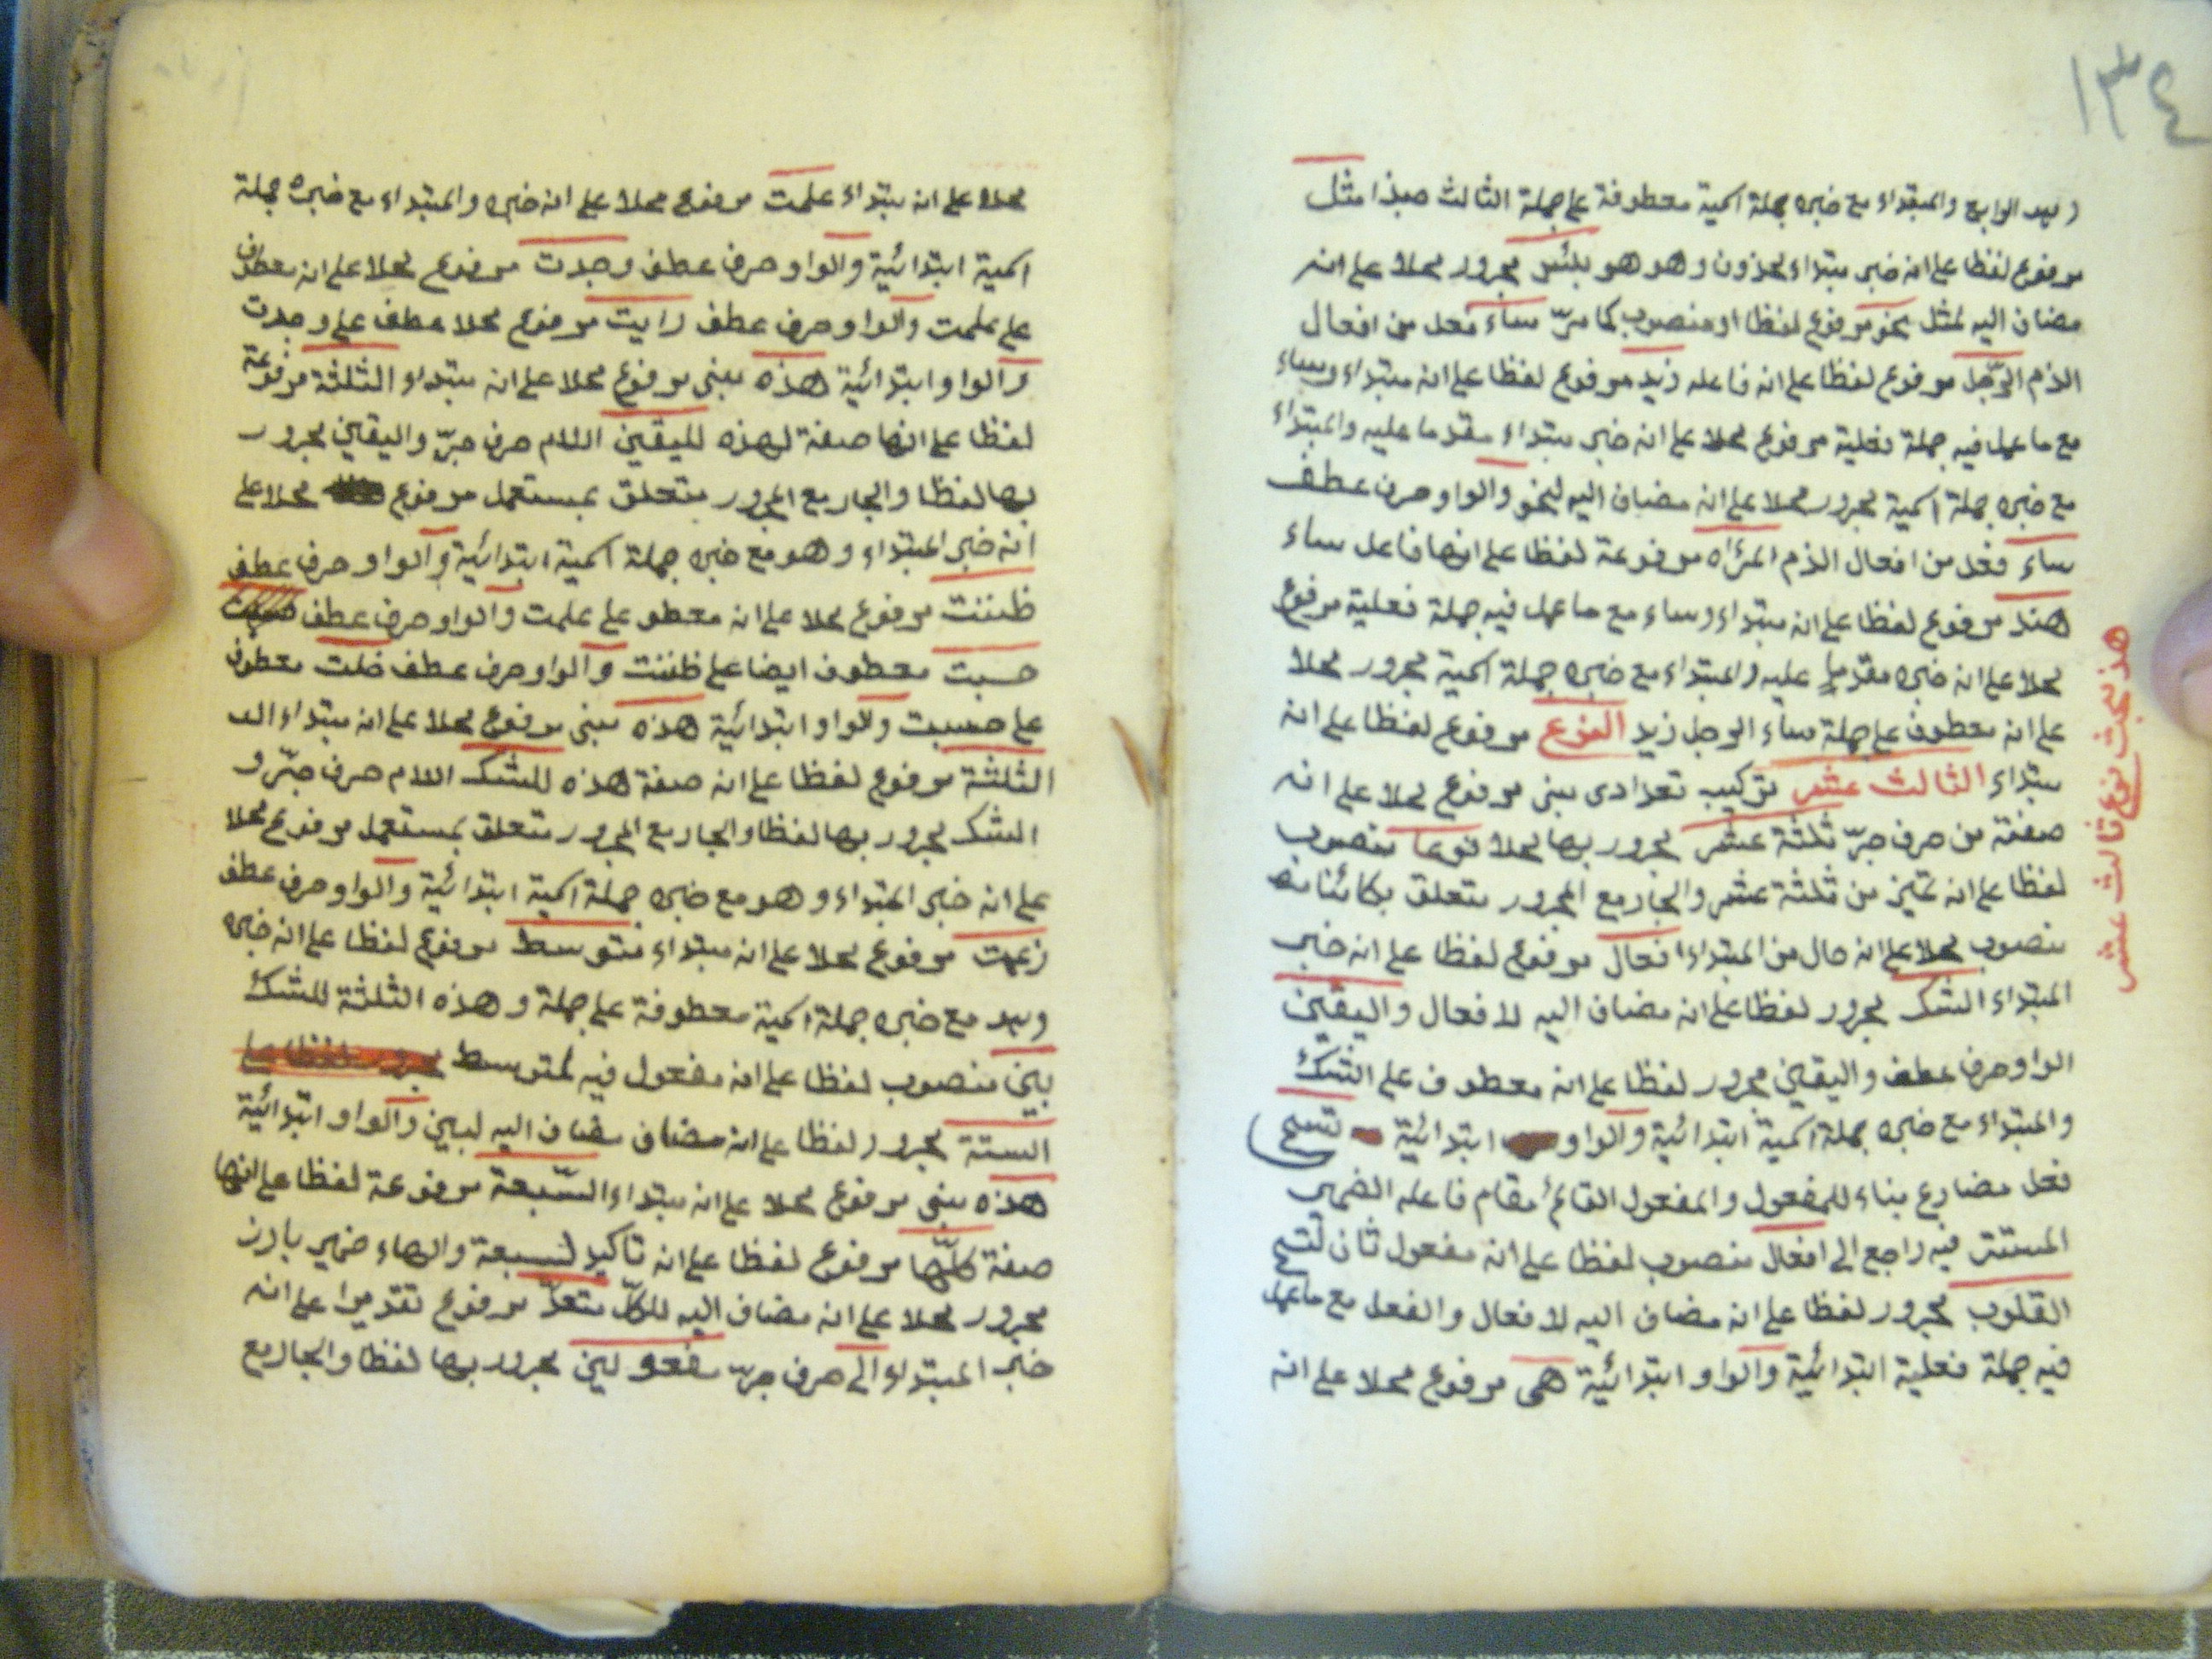 ١٣٤
زيد الرابع والمبتداء مع خبره جملة اسمية معطوفة على جملة الثالث حبذا مثل
مرفوع لفظا على انه خبر مبتداء محذوف وهو هو بئس مجرور محلا على انه
مضاف اليه لمثل نحو مرفوع لفظا او منصوب كما مرّ ساء فعل من افعال
الذم الرّجل مرفوع لفظا على انه فاعله زيد مرفوع لفظا على انه مبتداء وساء
مع ما عمل فيه جملة فعلية مرفوع محلا على انه خبر مبتداء مقدما عليه والمبتداء
مع خبره جملة اسمية مجرور محلا على انه مضاف اليه لنحو والواو حرف عطف
ساء فعل من افعال الذم المرأه مرفوعة لفظا على انها فاعل ساء
هند مرفوع لفظا على انه مبتداء وساء مع ما عمل فيه جملة فعلية مرفوع
محلا على انه خبره مقدما عليه والمبتداء مع خبره جملة اسمية مجرور محلا
على انه معطوف على جملة ساء الرجل زيد النوع مرفوع لفظا على انه
مبتداء الثالث عشر تركيب تعدادى مبنى مرفوع محلا على انه
صفته من حرف جرّ ثلثة عشر مجرور بها محلا نوعا منصوب
لفظا على انه تميز من ثلثة عشر والجار مع المجرور متعلق بكائنا
منصوب محلا على انه حال من المبتداء افعال مرفوع لفظا على انه خبر
المبتداء الشك مجرور لفظا على انه مضاف اليه لافعال واليقين
الواو حرف عطف واليقين مجرور لفظا على انه معطوف على الشك
والمبتداء مع خبره جملة اسمية ابتدائية والواو ابتدائية تسمى
فعل مضارع بناء للمفعول والمفعول القائم مقام فاعله الضمير
المستتر فيه راجع الى افعال منصوب لفظا على انه مفعول ثان لتسمى
القلوب مجرور لفظا على انه مضاف اليه لافعال والفعل مع ما عمل
فيه جملة فعلية ابتدائية والواو ابتدائية هى مرفوع محلا على انه
هذ بحث نوع ثالث عشر
محلا على انه مبتداء علمت مرفوع محلا على انه خبره والمبتداء مع خبره جملة
اسمية ابتدائية والواو حرف عطف وجدت مرفوع محلا على انه معطوف
على علمت والواو حرف عطف رايت مرفوع محلا عطف على وجدت
والواو ابتدائية هذه مبنى مرفوع محلا على انه مبتداء الثلثة مرفوعة
لفظا على انها صفة لهذه لليقين اللام حرف جرّ واليقين مجرور
بها لفظا والجار مع المجرور متعلق بمستعمل مرفوع محلا على
انه خبر المبتداء وهو مع خبره جملة اسمية ابتدائية والواو حرف عطف
ظننت مرفوع محلا على انه معطو على علمت والواو حرف عطف
حسبت معطوف ايضا على ظننت والواو حرف عطف خلت معطوف
على حسبت والواو ابتدائية هذه مبنى مرفوع محلا على انه مبتداء الـ
الثلثة مرفوع لفظا على انه صفة هذه للشك اللام حرف جرّ و
الشك مجرور بها لفظا والجار مع المجرور متعلق بمستعمل مرفوع محلا
على انه خبر المبتداء وهو مع خبره جملة اسمية ابتدائية والواو حرف عطف
زعمت مرفوع محلا على انه مبتداء متوسط مرفوع لفظا على انه خبره
وهو مع خبره جملة اسمية معطوفة على جملة وهذه الثلثة للشك
بين منصوب لفظا على انه مفعول فيه لمتوسط
الستة مجرور لفظا على انه مضاف مضاف اليه لبين والواو ابتدائية
هذه مبنى مرفوع محلا على انه مبتداء السّبعة مرفوعة لفظا على انها
صفة كلّها مرفوع لفظا على انه تاكيد لسبعة والهاء ضمير بارز
مجرور محلا على انه مضاف اليه للكلّ متعدّ مرفوع تقديرا على انه
خبر المبتداء الى حرف جرّ مفعولين مجرور بها لفظا والجار مع